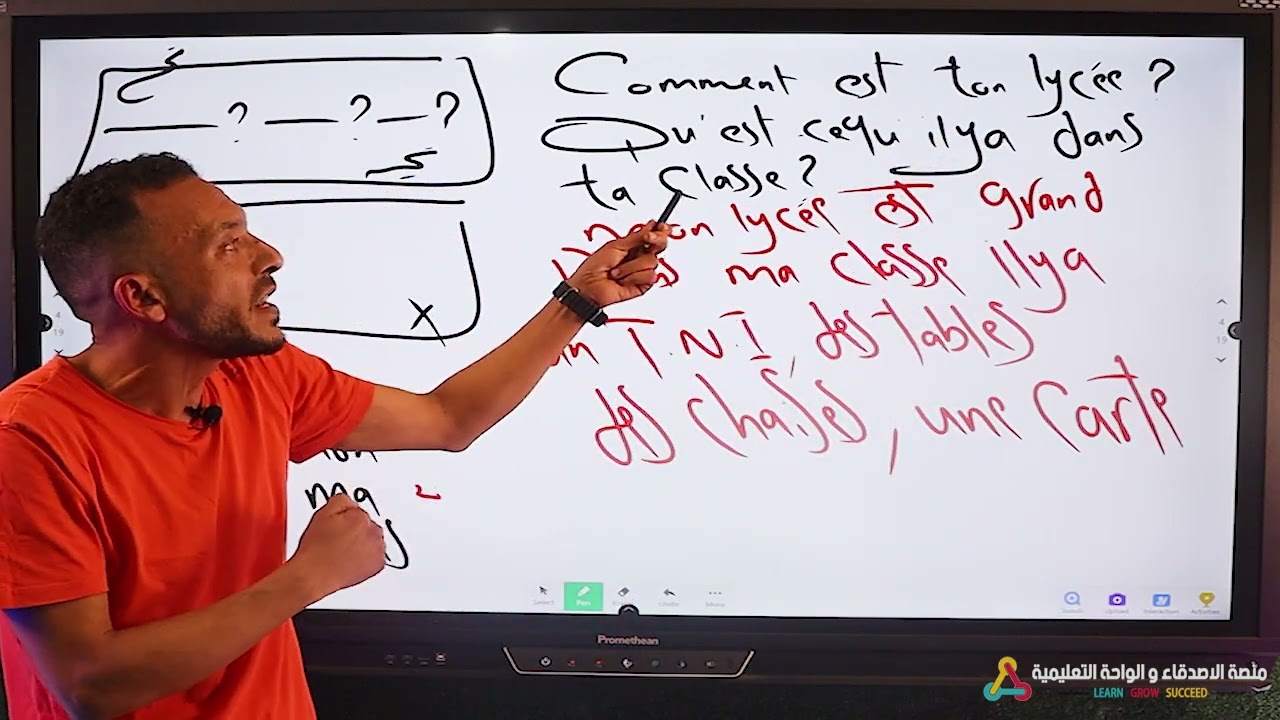 ? ? ?
Comment est ton lycée ?
Qu'est cequ ilya dans
ta classe ?
lycée est grand
ma classe ilya
T.N.I, des tables
des chaises, une Carte
ma
Select Pen Undo More
Activities
4
19
Promethean
منصة الاصدقاء و الواحة التعليمية
LEARN GROW SUCCEED